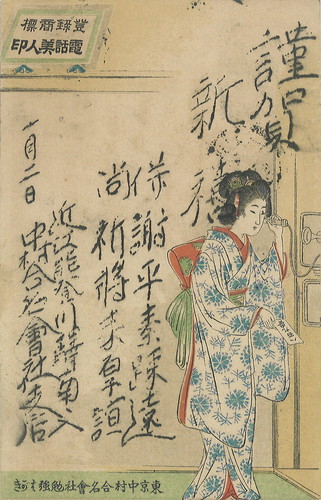 登録商標
電話美人印
謹賀
新禧
併謝平素疎遠
尚祈将来厚誼
一月二日
近江能登川驛南入
中村合名會社支店
東京中村合名會社勉強はがき